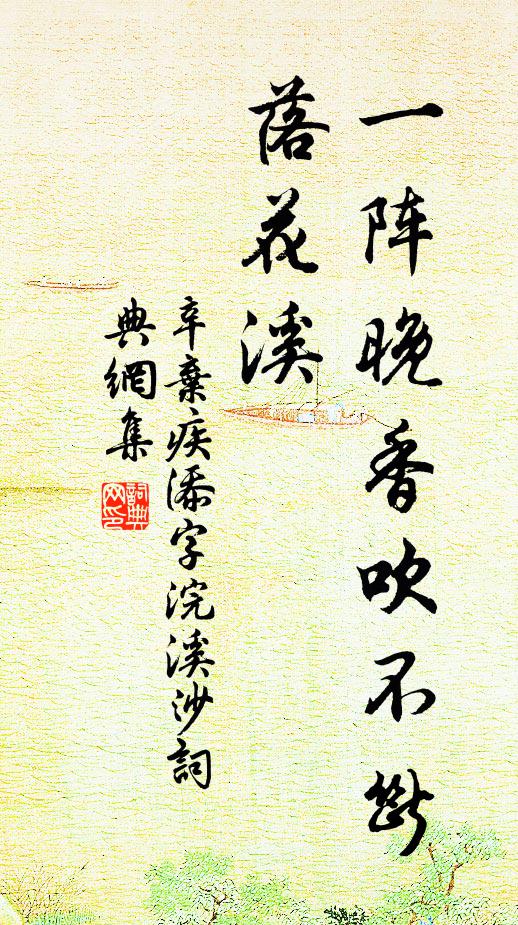 一阵晚香吹不断
落花溪
辛棄疾添字浣溪沙詞
典網集
詞典网印